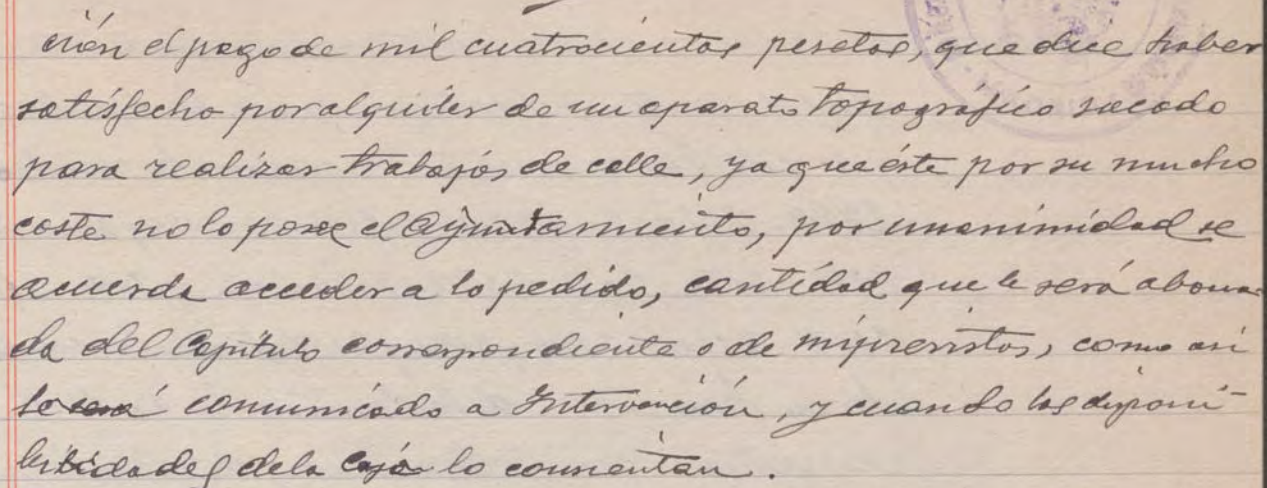 ción el pago de mil cuatrocientas pesetas, que dice haber
satisfecho por alquiler de un aparato topográfico sacado
para realizar trabajos de calle, ya que éste por su mucho
coste no lo posee el Ayuntamiento, por unanimidad se
acuerda acceder a lo pedido, cantidad que le será abona-
da del Capítulo correspondiente o de imprevistos, como asi
le será comunicado a Intervención, y cuando las disponi-
bilidades de la Caja lo consientan.